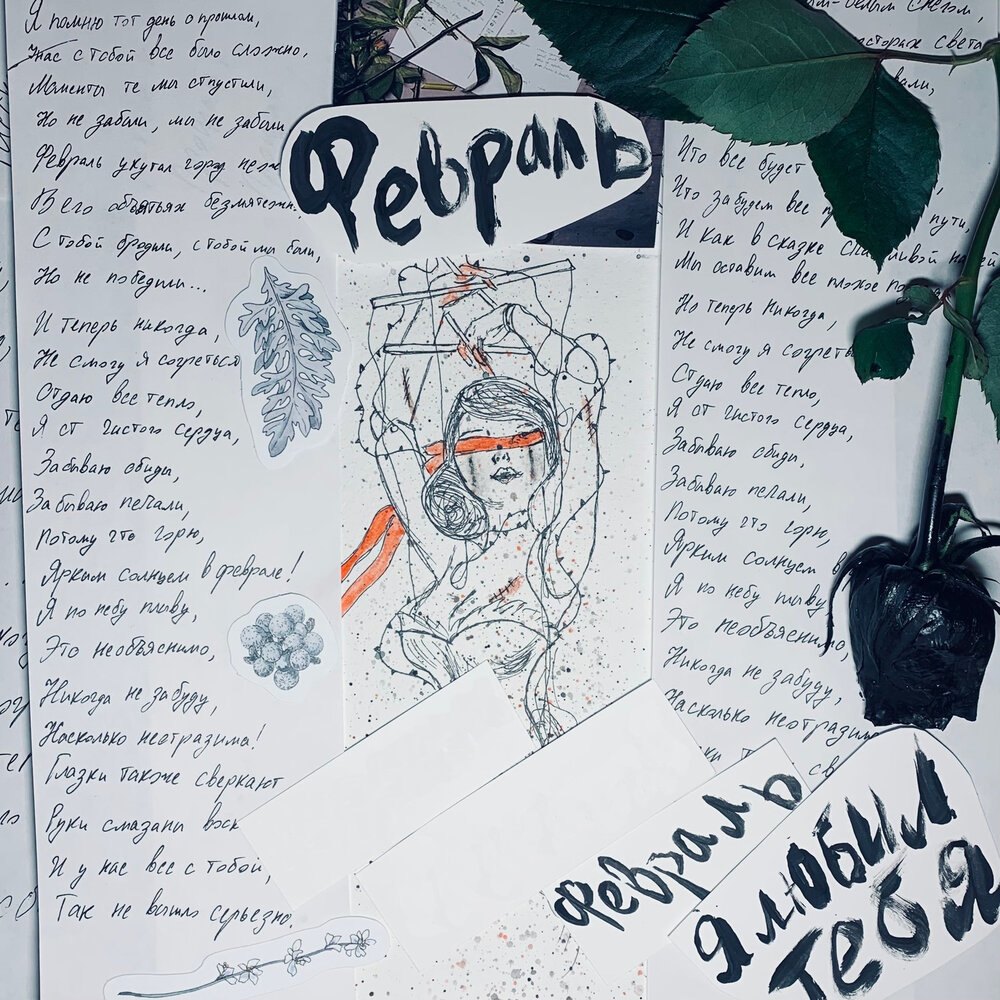 Я помню тот день о прошлом,
У нас с тобой все было сложно,
Моменты те мы отпустили,
Но не забыли, мы не забыли
Февраль укутал город
В его объятьях безмятежн
С тобой бродили, с тобой мы были,
Но не победили...
И теперь никогда,
Не смогу я согреться
Отдаю все тепло,
Я от чистого сердца,
Забываю обиды,
Забываю печали,
Потому что горю,
Ярким солнцем в феврале!
Я по небу плыву,
Это необъяснимо,
Никогда не забуду,
Насколько неотразима!
Глазки также сверкают
Руки смазаны
И у нас все с тобой,
Так не вышло серьезно.
Февраль
снегом,
света
Что все будет
Что забудем все пути,
И как в сказке
Мы оставим все плохое
Но теперь никогда,
Не смогу я согреть
Отдаю все тепло,
Я от чистого сердца,
Забываю обиды,
Забываю печали,
Потому что горю,
Ярким солнцем в
Я по небу плыву
Это необъяснимо,
Никогда не забуду,
Насколько неотразим
Февраль
Я ЛЮБИЛ
ТЕБЯ